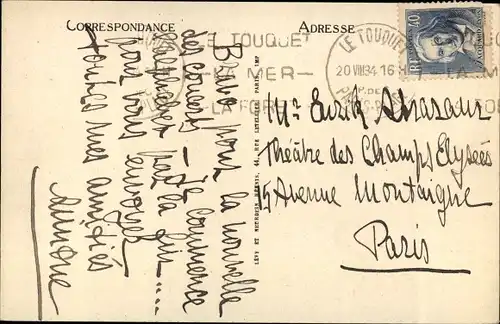 CORRESPONDANCE
ADRESSE
LE TOUQUET
LA MER
LA FORÊT
LE TOUQUET
20 VIII 34 16
PAS-DE
40
RF
Bravo pour la nouvelle
des concerts – Je commence
par la fin....
pour vous envoyer
toutes mes amitiés
Simone
Mr Enrik
Théâtre des Champs Elysées
15 Avenue Montaigne
Paris
LÉVY ET NEURDEIN RÉUNIS, 44, RUE LETELLIER, PARIS. IMP